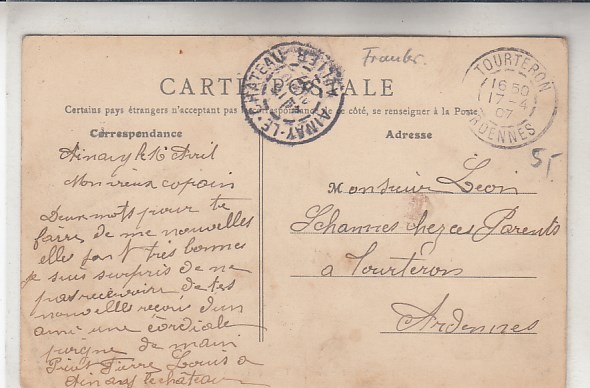 Frauber
AINAY-LE-CHATEAU ALLIER
TOURTERON
16 50
17-4
07
ARDENNES
CARTE POSTALE
Certains pays étrangers n'acceptant pas la correspondance de ce côté, se renseigner à la Poste
Correspondance
Adresse
Ainay le 16 Avril
Mon vieux copain
Deux mots pour te
faire de me nouvelles
elles son t très bonnes
je suis surpris de ne
pas recevoir de tes
nouvelle reçoi d'un
ami une cordiale
poigne de main
Piot Pierre Louis a
Ainay le chateau
Monsieur Léon
Schannes chez ces Parents
a Tourteron
Ardennes